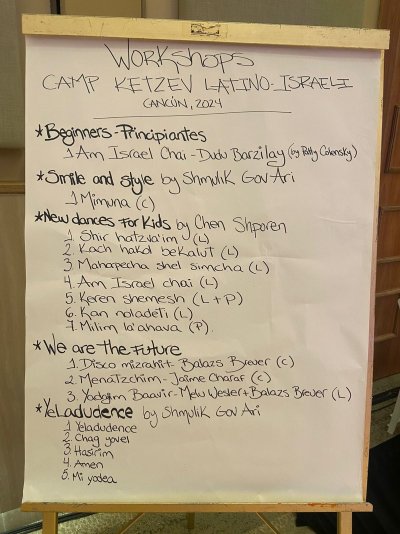 Workshops
CAMP KETZEV LATINO-ISRAELI
CANCÚN, 2024
*Beginners-Principiantes
1 Am Israel Chai - Dudu Barzilay (by Patty Colensky)
*Smile and style by Shmulik Gov Ari
1 Mimuna (C)
*New dances For Kids by Chen Shporen
1. Shir hatzva'im (L)
2. Kach hakol beKalut (L)
3 Mahapecha shel simcha (L)
4. Am Israel chai (L)
5. Keren shemesh (L+P)
6. Kan noladeti (L)
7. Milim la'ahava (P).
*We are the Future
1. Disco mizrahit - Balazs Breuer (C)
2. Menatzchim - Jaime Charaf (C)
3 Yadayim Baavir - Melu Wesler + Balazs Breuer (L)
*Yeladudence by Shmulik Gov Ari
1 Yeladudence
2. Chag yovel
3. Hasirim
4. Amen
5. Mi yodea